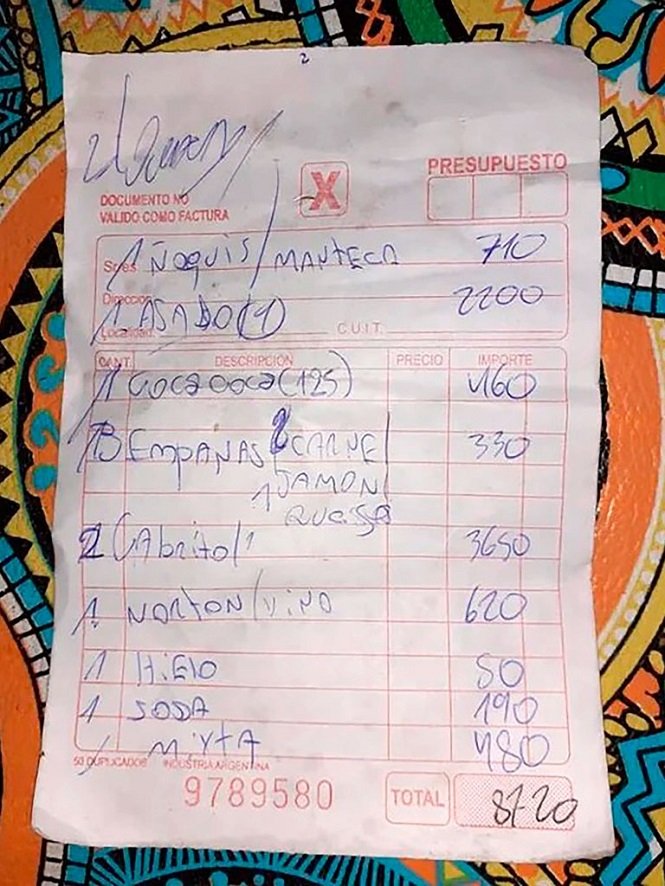 2
PRESUPUESTO
X
DOCUMENTO NO
VALIDO COMO FACTURA
Sres. 1 ÑOQUIS/MANTECA 710
Dirección
Localidad 1 ASADO (1) C.U.I.T. 2200
CANT. DESCRIPCIÓN PRECIO IMPORTE
1 COCA COCA (125) 460
3 EMPANAS 2 CARNE/ 330
1 JAMON/
2 CABrito/1 3650
1 NORTON/VINO 620
1 HIELO 50
1 SODA 190
/ MIXTA 480
50 DUPLICADOS INDUSTRIA ARGENTINA
9789580 TOTAL 8720